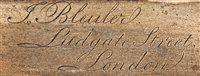 J. Bleuler
Ludgate Street,
London